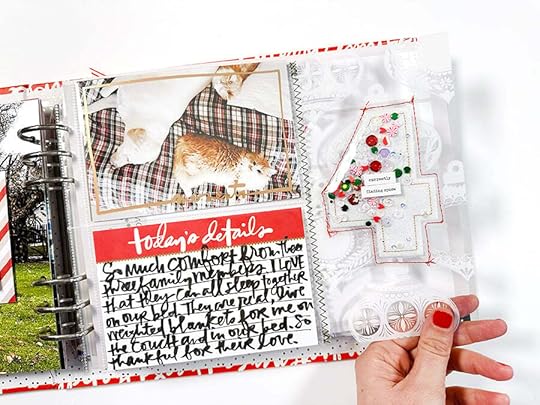 4
currently
finding snow
today's details
So much comfort from these
three family members. I LOVE
that they can all sleep together
on our bed. They are
weighted blankets for me on
the couch and in our bed. So
thankful for their love.